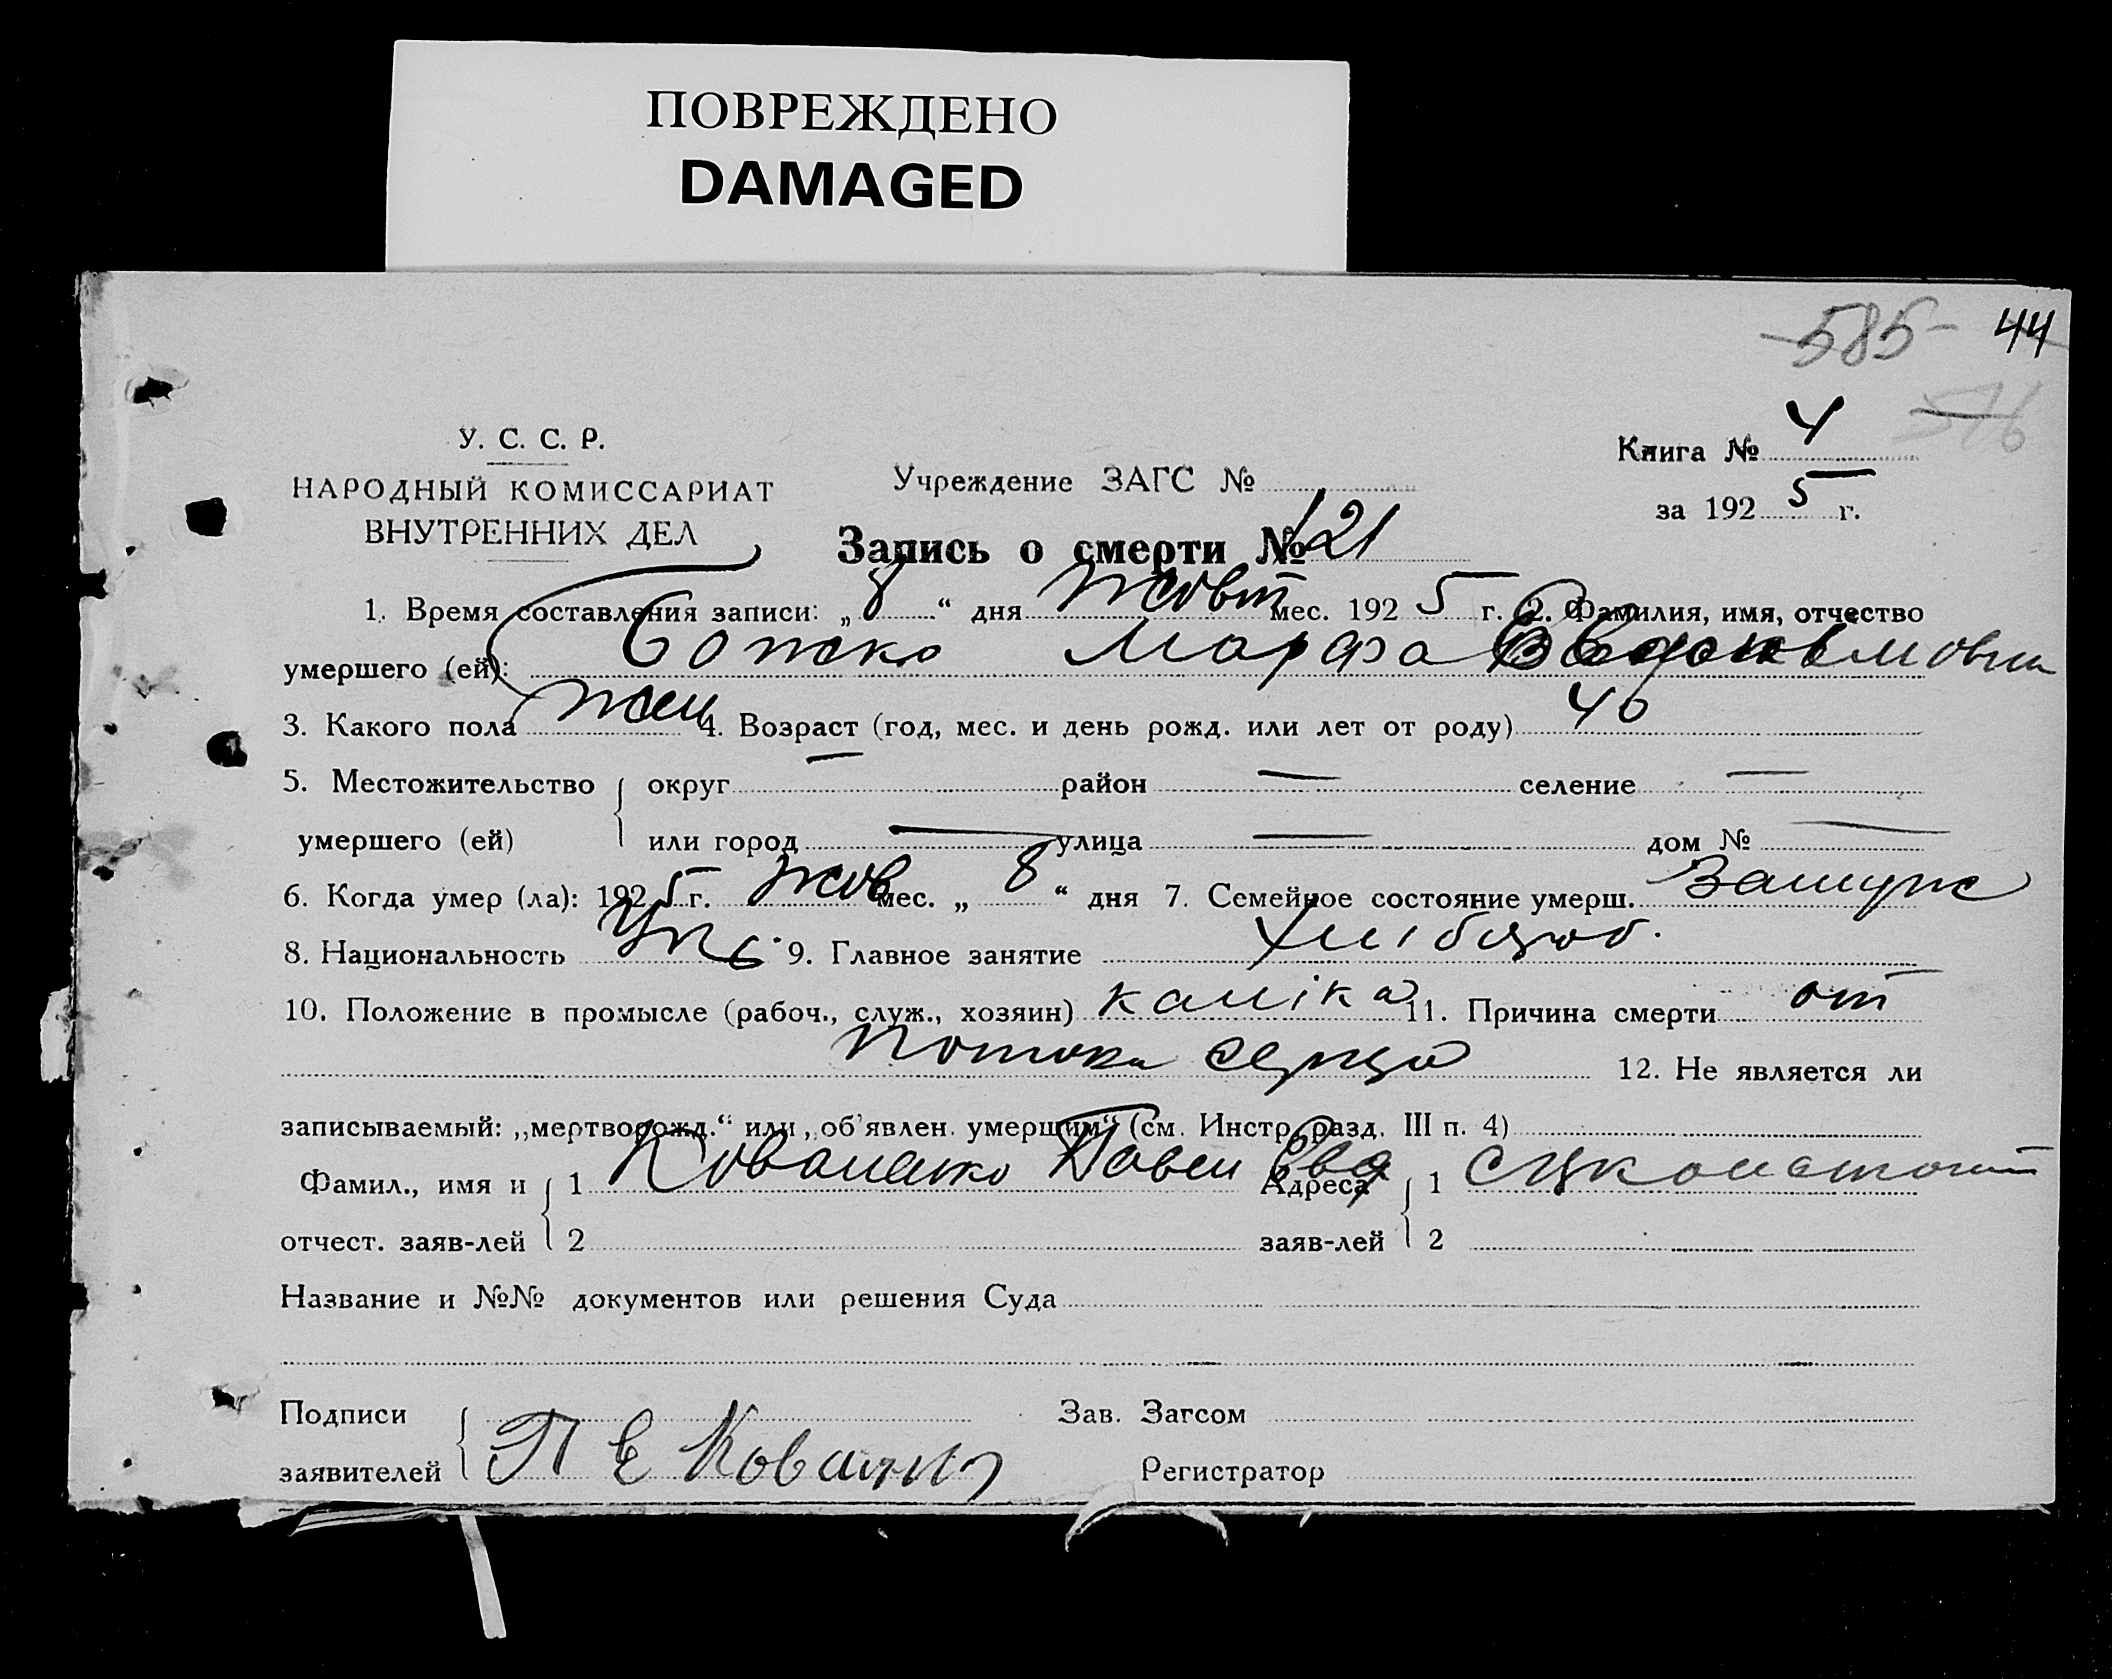 ПОВРЕЖДЕНО
DAMAGED
585 44
516
У. С. С. Р.
НАРОДНЫЙ КОМИССАРИАТ
ВНУТРЕННИХ ДЕЛ
Учреждение ЗАГС №
Книга № 4
за 1925 г.
Запись о смерти № 121
1. Время составления записи: „8“ дня Жовт мес. 1925 г. 2. Фамилия, имя, отчество
умершего (ей): Божко Марфа
3. Какого пола жен 4. Возраст (год, мес. и день рожд. или лет от роду) 46
5. Местожительство округ — район — селение —
умершего (ей) или город — улица — дом № —
6. Когда умер (ла): 1925 г. жов мес. „8“ дня 7. Семейное состояние умерш. Замужс
8. Национальность Укр 9. Главное занятие хлібороб.
10. Положение в промысле (рабоч., служ., хозяин) каліка 11. Причина смерти от
серця 12. Не является ли
записываемый: „мертворожд.“ или „об'явлен. умершим“ (см. Инстр. разд. III п. 4)
Фамил., имя и 1 Коваленко Павел Евд Адреса 1
отчест. заяв-лей 2 заяв-лей 2
Название и №№ документов или решения Суда
Подписи Зав. Загсом
заявителей П Е Регистратор